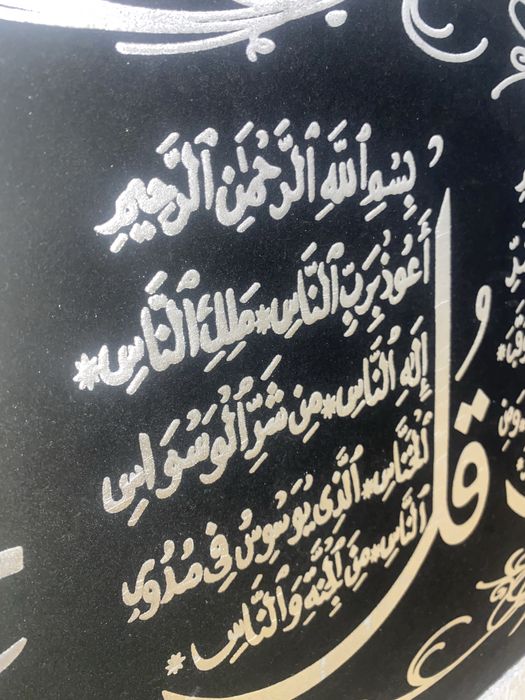 بِسْمِ اللَّهِ الرَّحْمَٰنِ الرَّحِيمِ
قُلْ
أَعُوذُ بِرَبِّ النَّاسِ * مَلِكِ النَّاسِ *
إِلَٰهِ النَّاسِ * مِن شَرِّ الْوَسْوَاسِ
الْخَنَّاسِ * الَّذِي يُوَسْوِسُ فِي صُدُورِ
النَّاسِ * مِنَ الْجِنَّةِ وَالنَّاسِ *